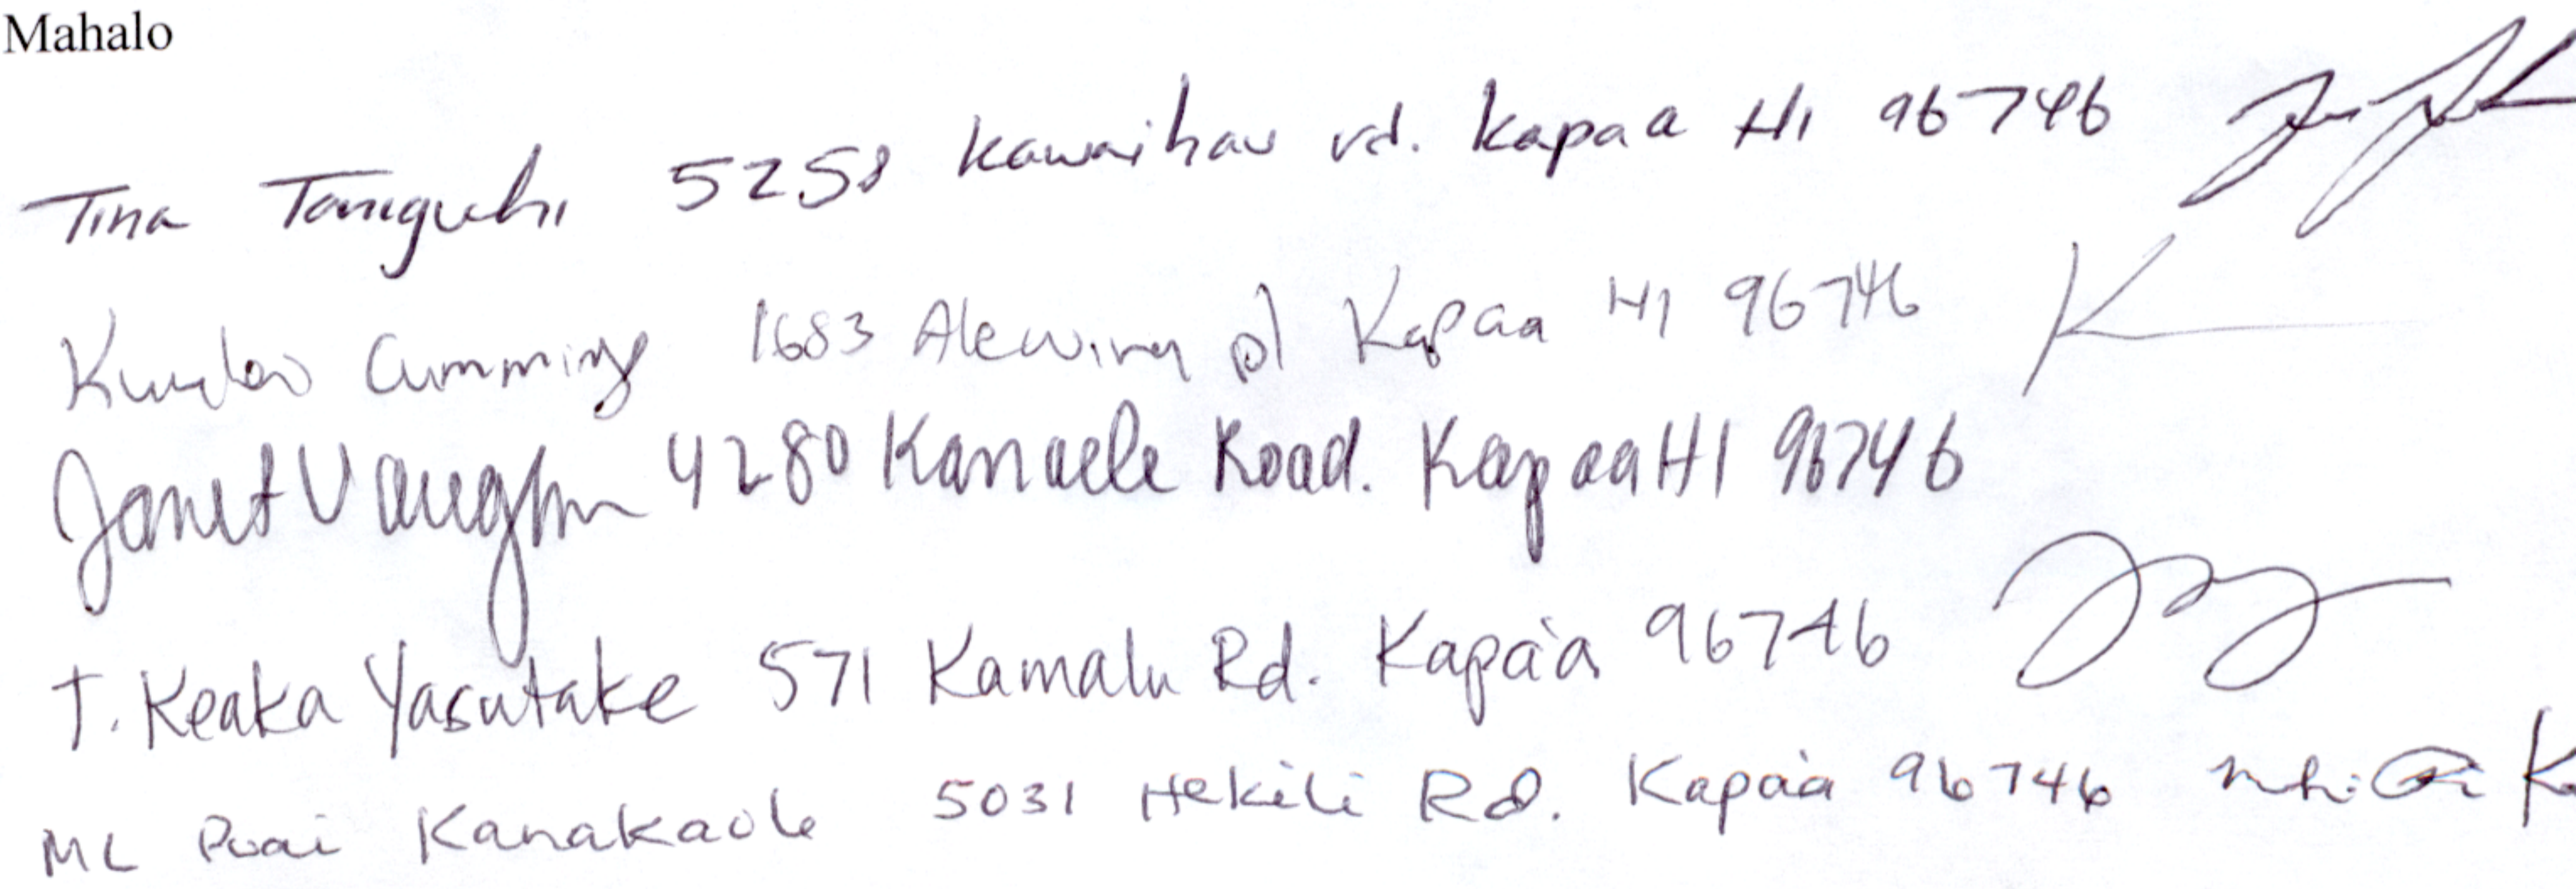 Mahalo
Tina Taniguchi 5258 Kawaihau rd. Kapaa HI 96746
Cumming 1683 pl Kapaa HI 96746
Janet Vaughn 4280 Kanaele Road. Kapaa HI 96746
T. Keaka Yasutake 571 Kamalu Rd. Kapa'a 96746
ML Puai Kanakaole 5031 Hekili Rd. Kapa'a 96746